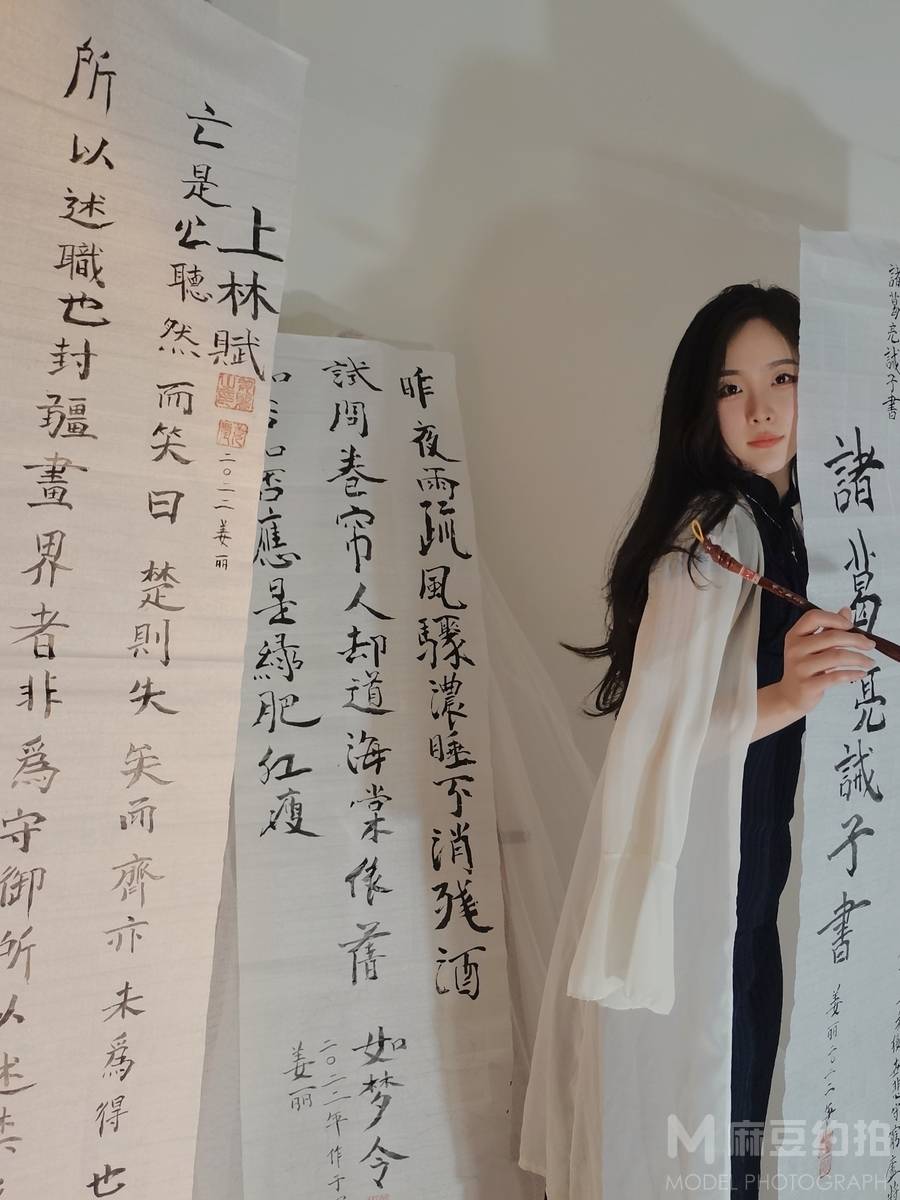 上林賦
二〇二二姜丽
亡是公聽然而笑曰楚則失矣而齊亦未為得也
所以述職也封疆畫界者非為守御所以述
昨夜雨疏風驟濃睡不消残酒
試問卷帘人却道海棠依舊
知否知否應是緑肥红瘦
如梦令
二〇二二年作于
姜丽
諸葛亮誡子書
諸葛亮誡子書
姜丽二〇二二年
麻豆约拍
MODEL PHOTOGRAPH